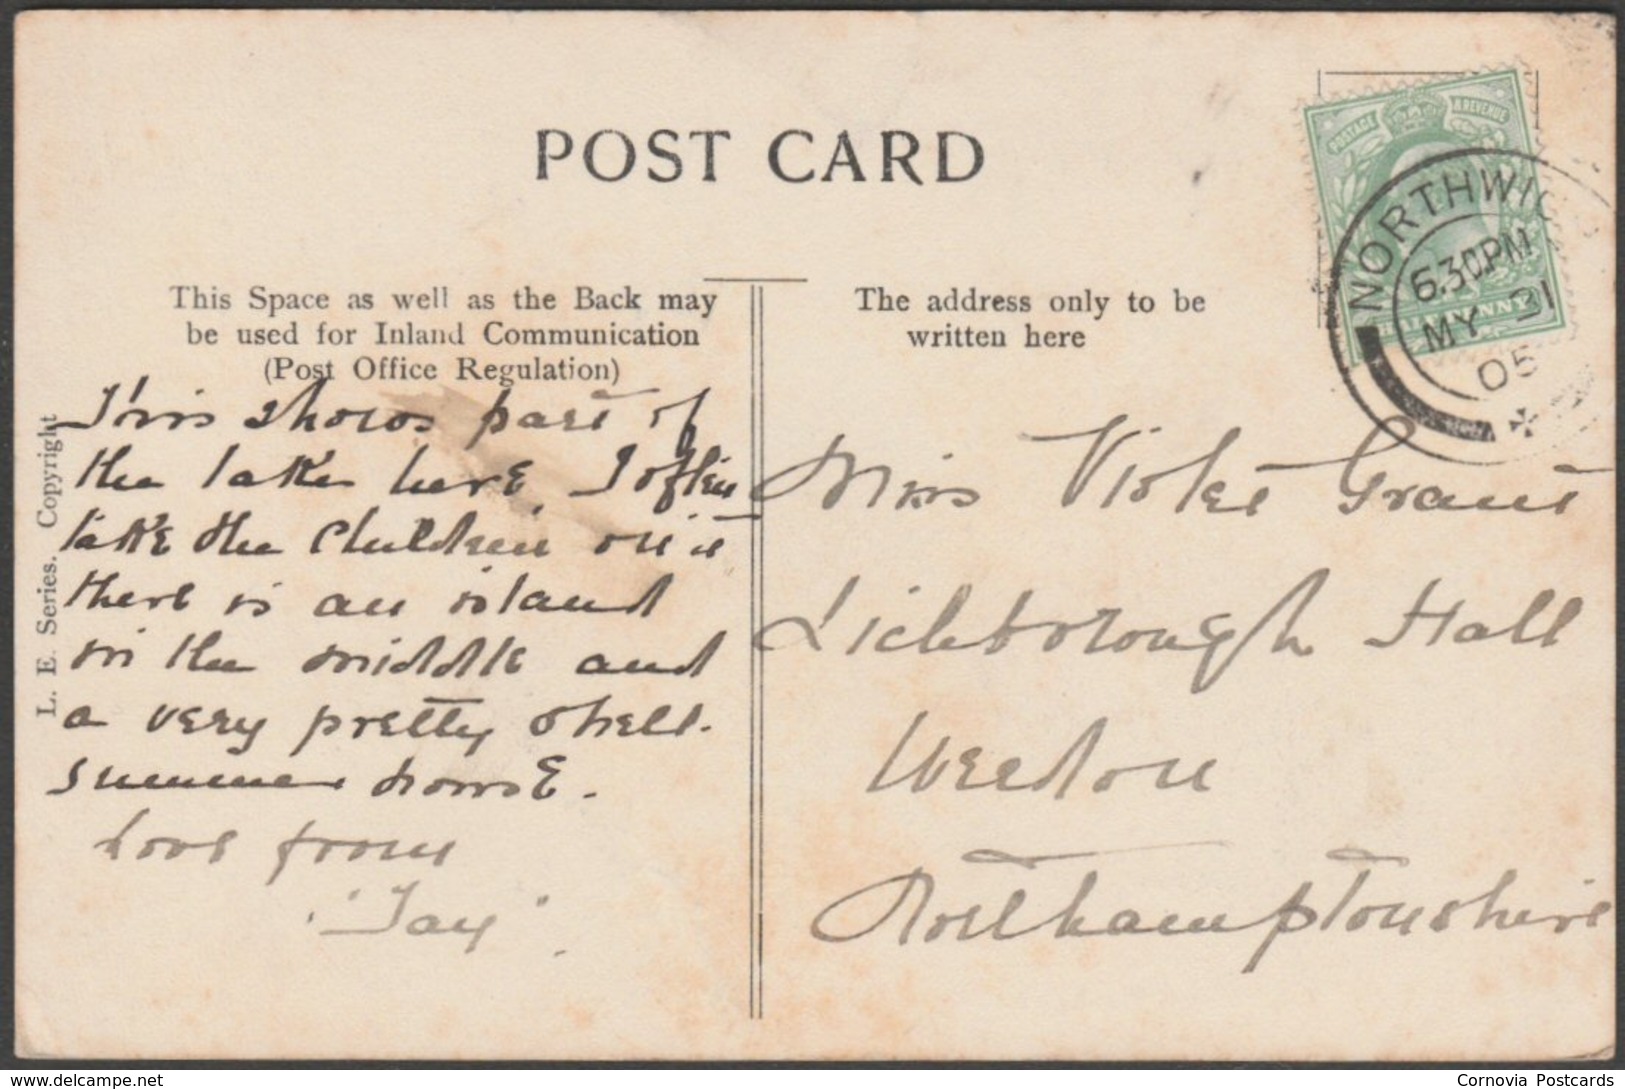 POST CARD
This Space as well as the Back may
be used for Inland Communication
(Post Office Regulation)
The address only to be
written here
L. E. Series. Copyright
POSTAGE & REVENUE
HALFPENNY
NORTHWIC
6.30PM
MY 31
05
This shows part of
the lake here I often
take the children on it
there is an island
in the middle and
a very pretty shell
summer house.
Love from
"Tay".
Miss Violet Grant
Lichborough Hall
Weedon
Northamptonshire
www.delcampe.net
Cornovia Postcards